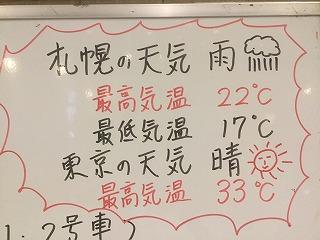 札幌の天気 雨
最高気温 22℃
最低気温 17℃
東京の天気 晴
最高気温 33℃
2号車